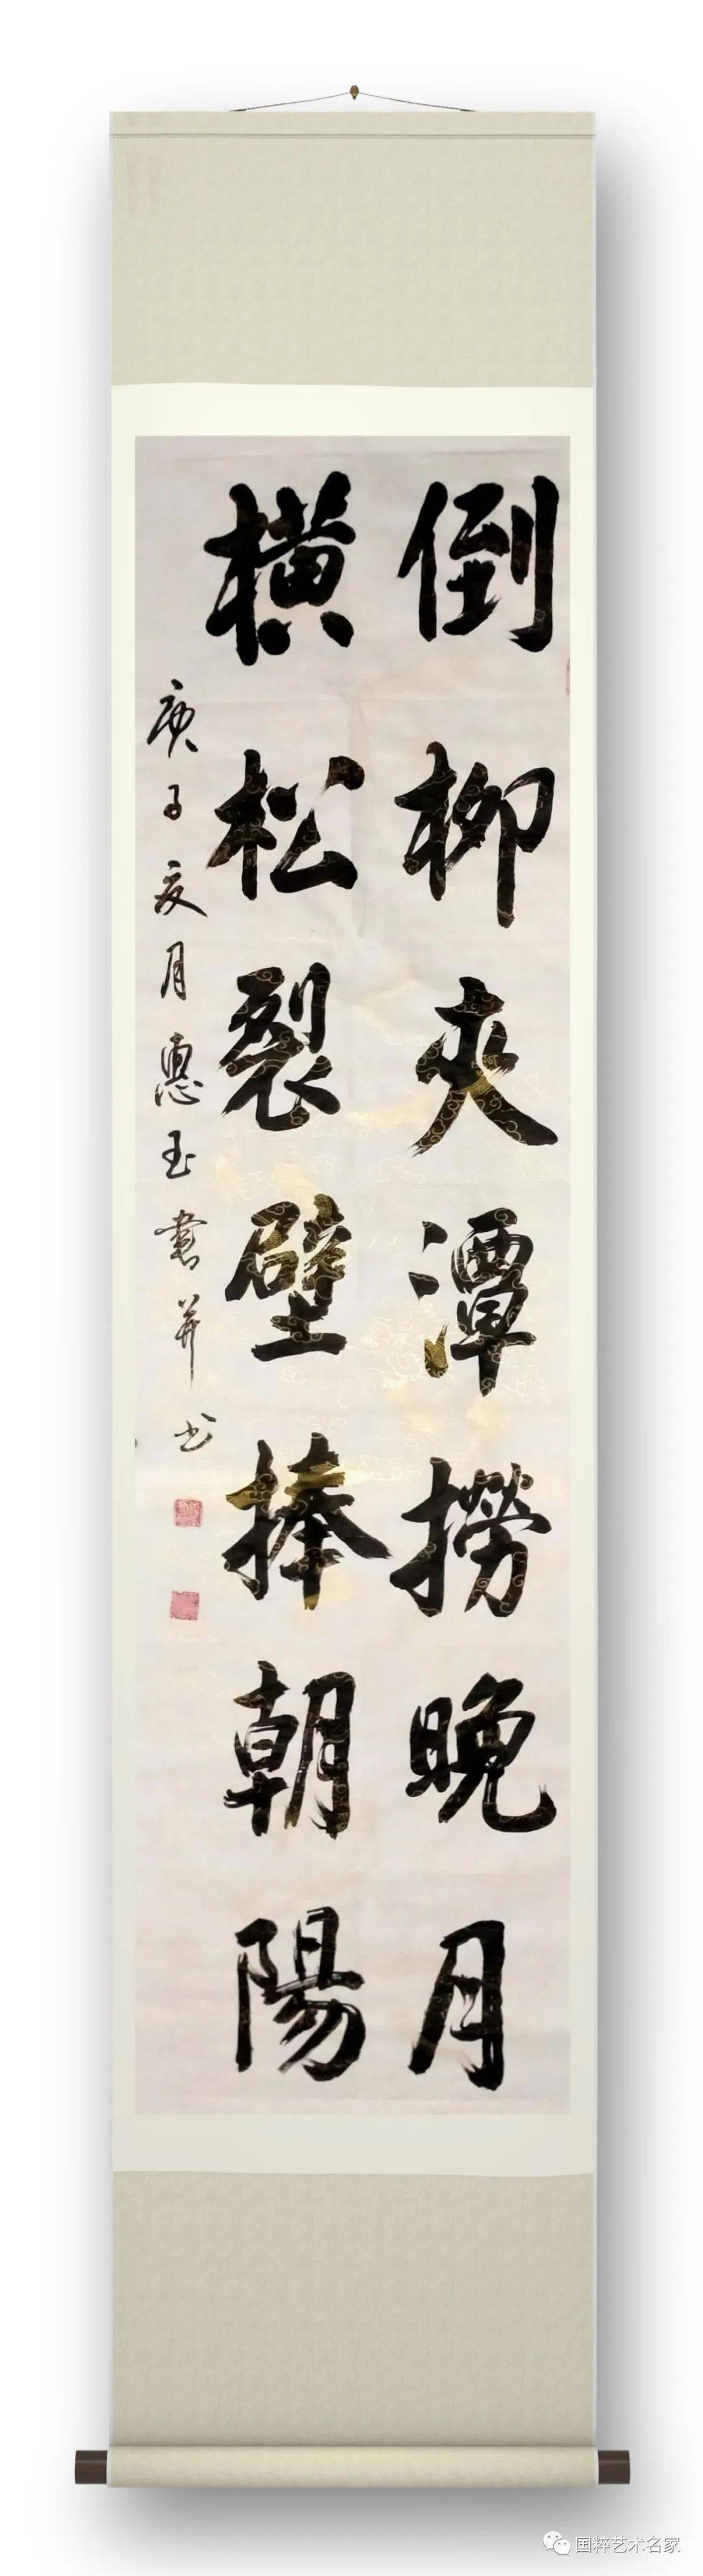 倒柳夾潭撈晚月
橫松裂壁捧朝陽
庚子夏月惠玉書并
国粹艺术名家